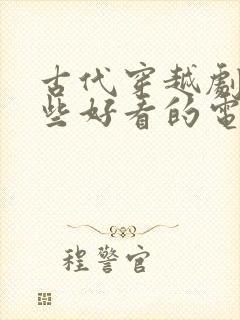 古代穿越劇
些好看的電
程警官